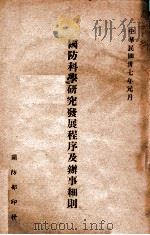 中華民國卅七年元月
國防科學研究發展程序及辦事細則
國防部印發